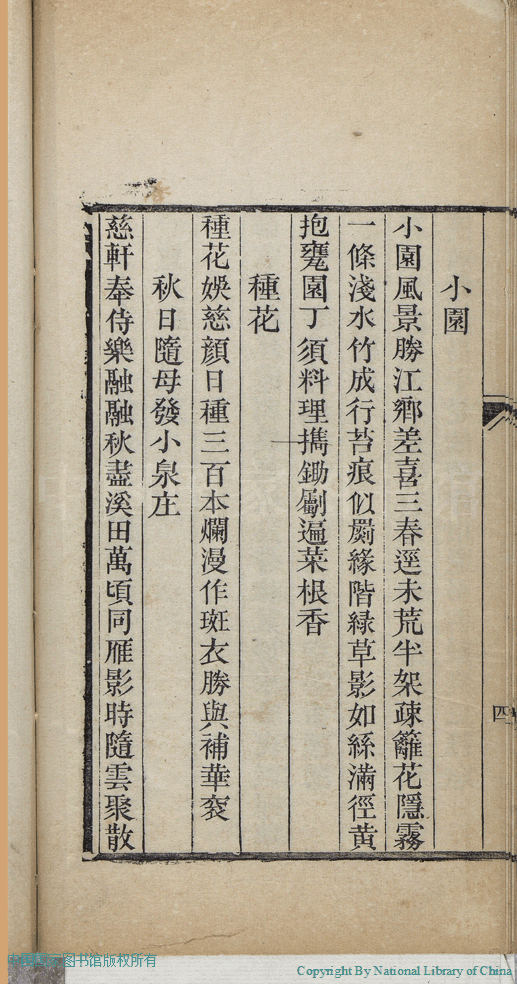 四
小園
小園風景勝江鄉差喜三春逕未荒半架疎籬花隱霧
一條淺水竹成行苔痕似罽緣階綠草影如絲滿徑黄
抱甕園丁須料理擕鋤劚遍菜根香
種花
種花娛慈顔日種三百本爛漫作斑衣勝與補華衮
秋日隨母發小泉庄
慈軒奉侍樂融融秋盡溪田萬頃同雁影時隨雲聚散
图书馆版权所有
Copyright By National Library of China